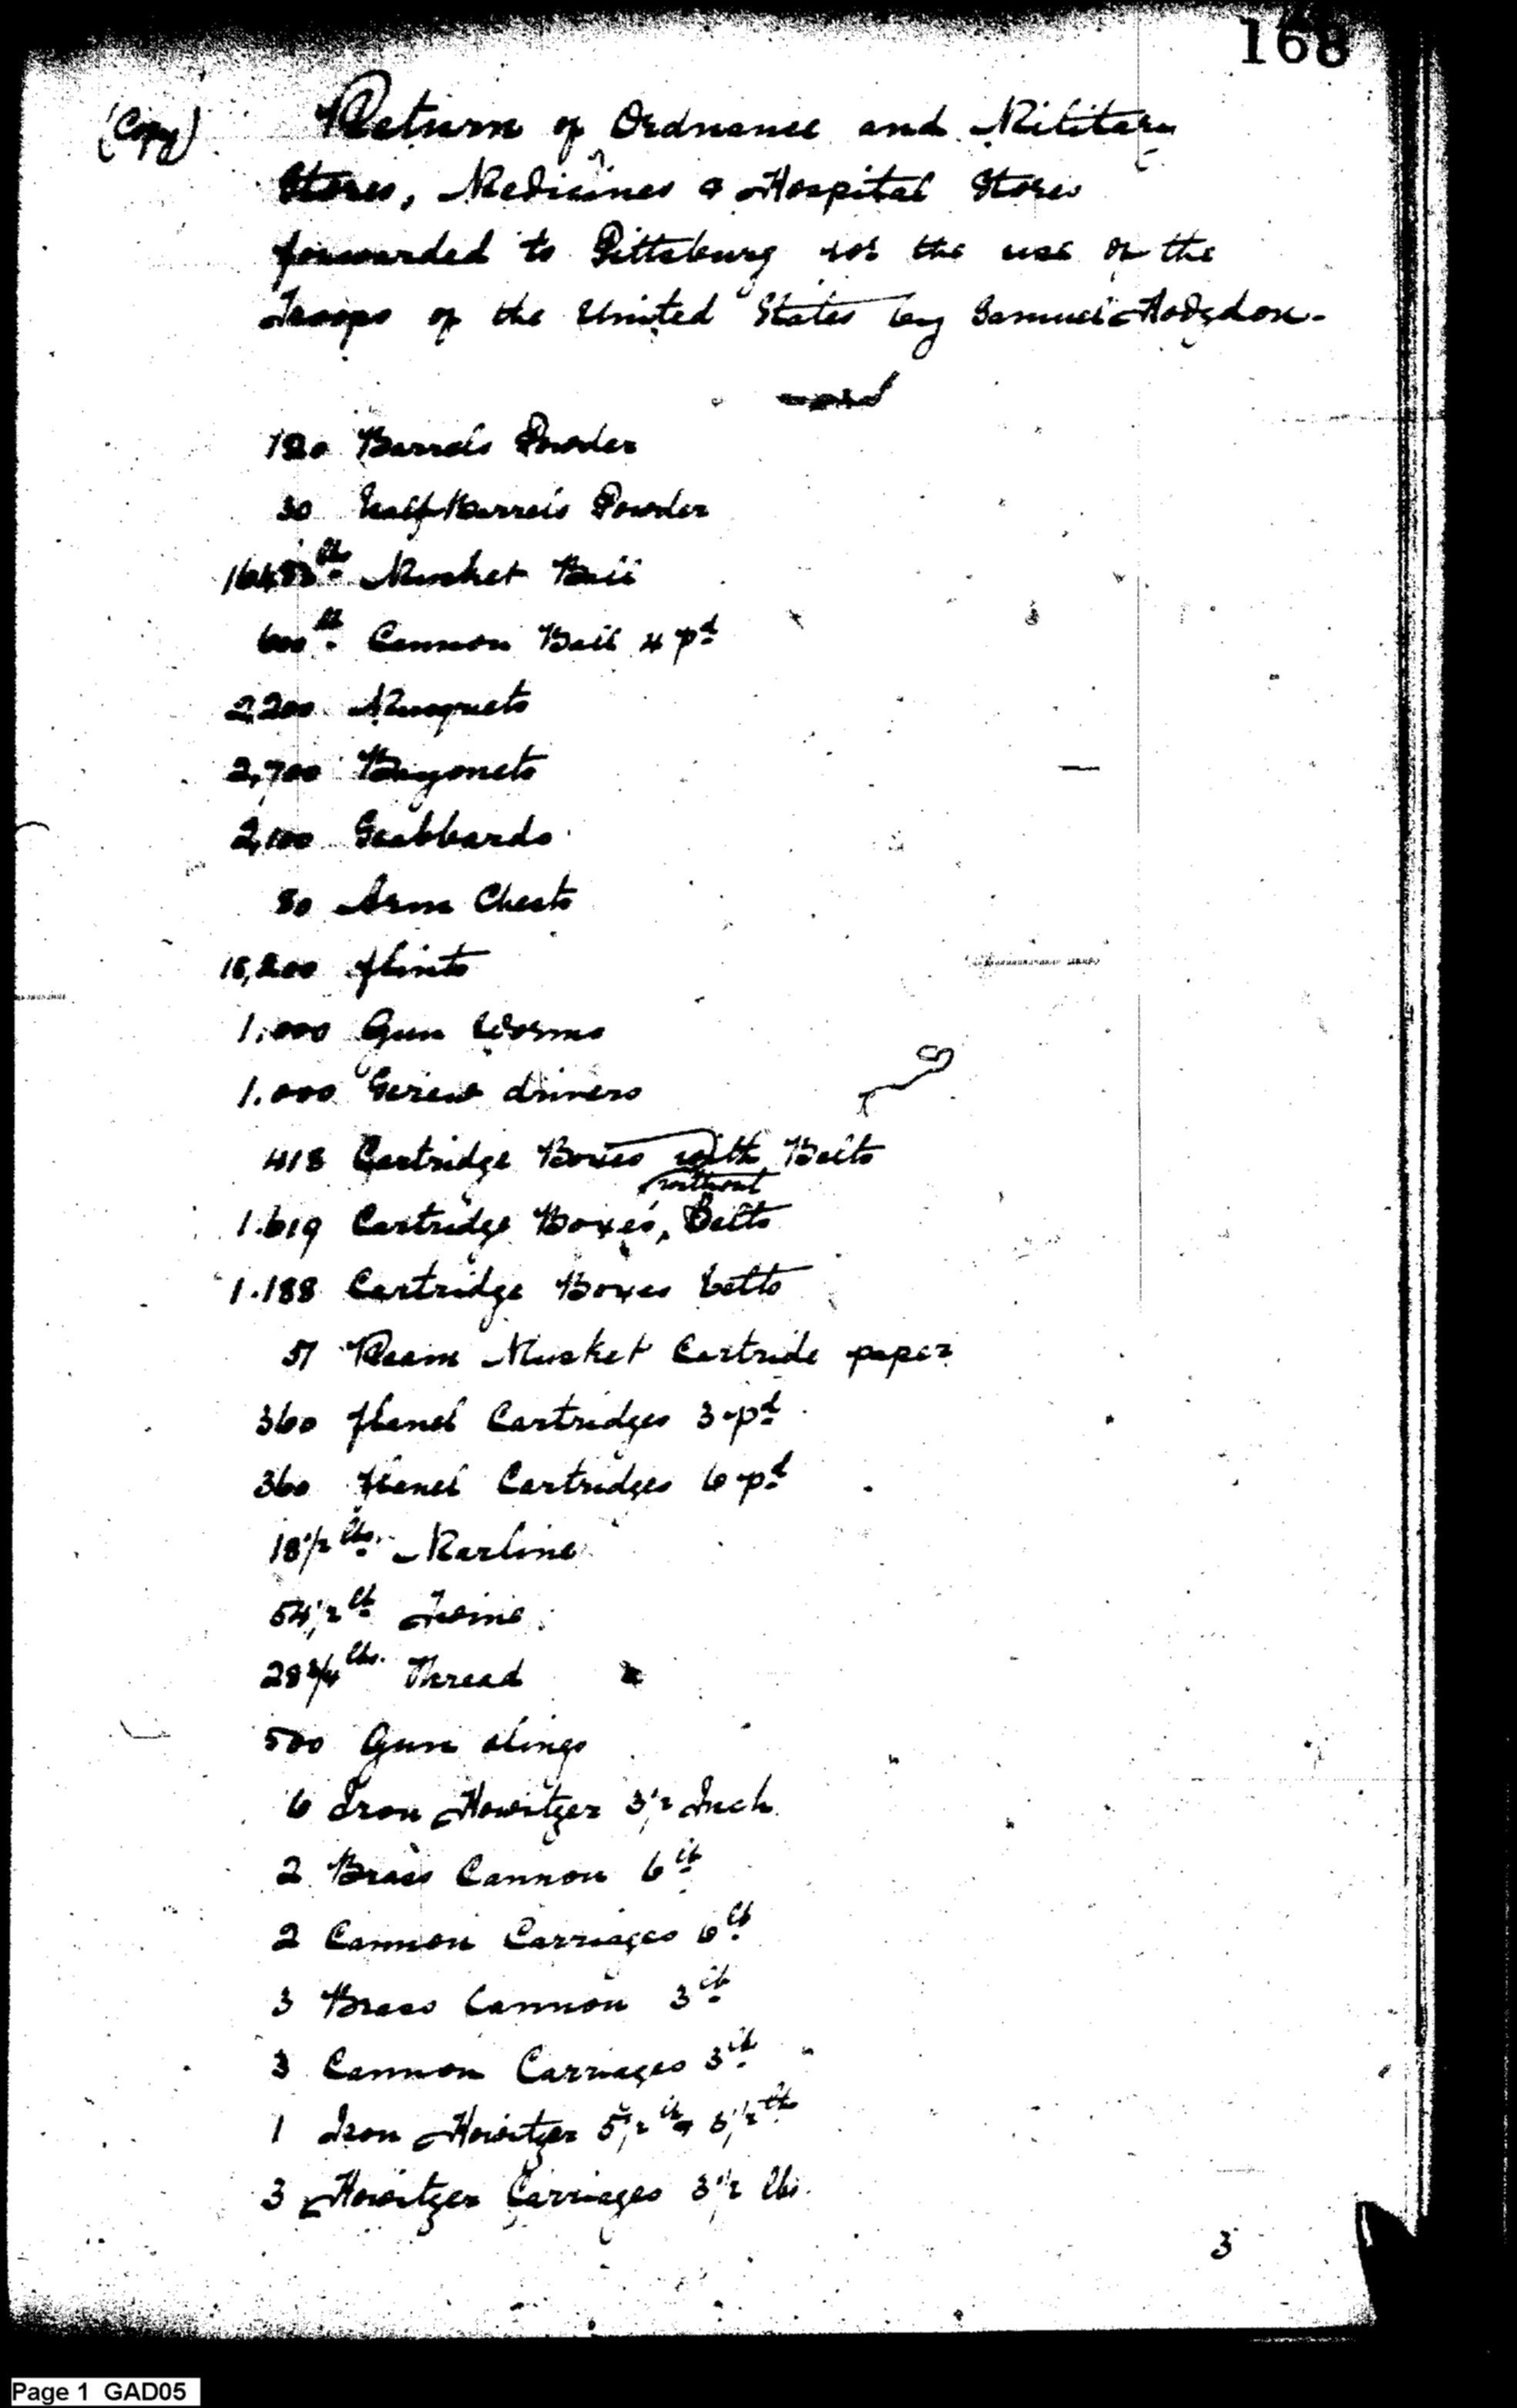 168
(Copy) Return of Ordnance and Military
Stores, Medicines & Hospital Stores
forwarded to Pittsburg for the use of the
Troops of the United States by Samuel Hodgdon.
Barrels Powder
30 half Barrels Powder
lbs Musket Ball
600 lb. Cannon Ball 4 pd
2,200 Musquets
2,700 Bayonets
2,100 Scabbards
80 Arm Chests
flints
1.000 Gun Worms
1.000 Screw drivers
418 Cartridge Boxes with Belts
without
1.619 Cartridge Boxes, Belts
1.188 Cartridge Boxes belts
51 Ream Musket Cartride paper
360 flanel Cartridges 3 pd
360 flanel Cartridges 6 pd
18 1/2 lbs. Marline
54 1/2 lb Twine
28 3/4 lbs. Thread
500 Gun slings
6 Iron Howitzer 3 1/2 Inch
2 Brass Cannon 6 lb
2 Cannon Carriages 6 lb
3 Brass Cannon 3 lb
3 Cannon Carriages 3 lb
1 Iron Howitzer 5 1/2 lb
3 Howitzer Carriages 3 1/2 lbs.
3
Page 1 GAD05